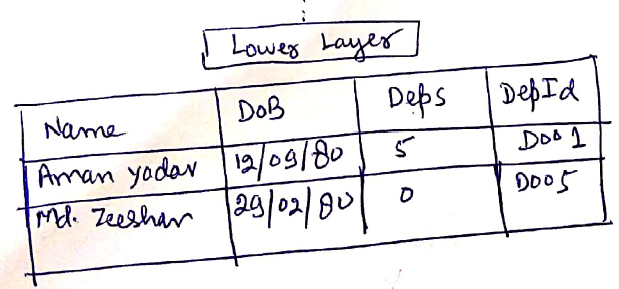 Lower Layer
Name DoB Deps DepId
Aman yadav 12/09/80 5 D001
Md. Zeeshan 29/02/80 0 D005